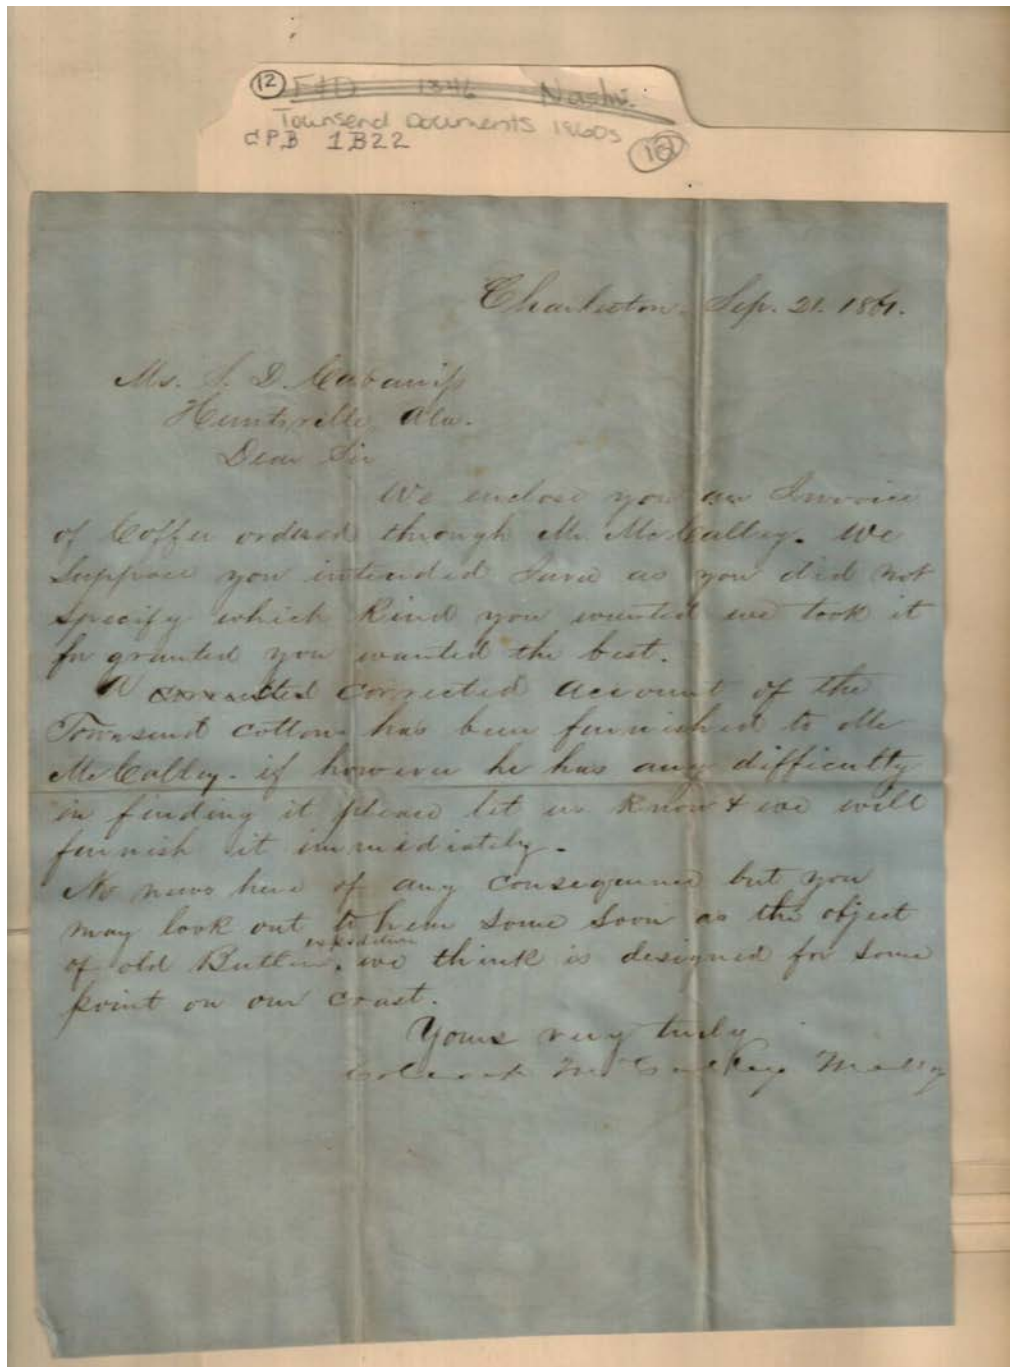 12 F&D 1846 Nashv.
Townsend Documents 1860s
CPB 1B22
Charleston. Sep. 21. 1861.
Mr. S. D. Cabaniss
Huntsville Ala.
Dear Sir
We enclose you an Invoice
of Coffee ordered through Mr. McCalley. We
suppose you intended Java as you did not
specify which kind you wanted we took it
for granted you wanted the best.
A corrected corrected account of the
Townsend cotton has been furnished to Mr
McCalley. if however he has any difficulty
in finding it please let us know & we will
furnish it immidiately.
No news here of any consequence but you
may look out to hear some soon as the object
expedition
of old Butler, we think is designed for some
point on our coast.
Yours very truly